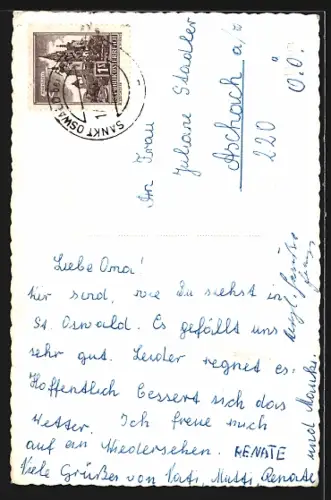 SANKT OSWALD
An Frau
Juliane Stadler
Aschach a/D
220
O.Ö.
Liebe Oma!
Wir sind, wie Du siehst in
St. Oswald. Es gefällt uns
sehr gut. Leider regnet es.
Hoffentlich bessert sich das
Wetter. Ich freue mich
auf ein Wiedersehen. RENATE
Viele Grüße von Vati, Mutti, Renate
und